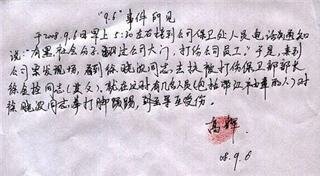 "9.6"事件所见
于2008.9.6日早上5:30左右接到公司保卫处人员电话通知
说:"有黑社会分子翻过公司大门,打伤公司员工。"于是,来到
公司案发现场,看到徐晓波同志,去扶被打伤保卫部部长
徐金拴同志(其父),就在这时有几名人员(包括带红木的人)对
徐晓波同志拳打脚踢踢,致其受伤。
高辉
08.9.6